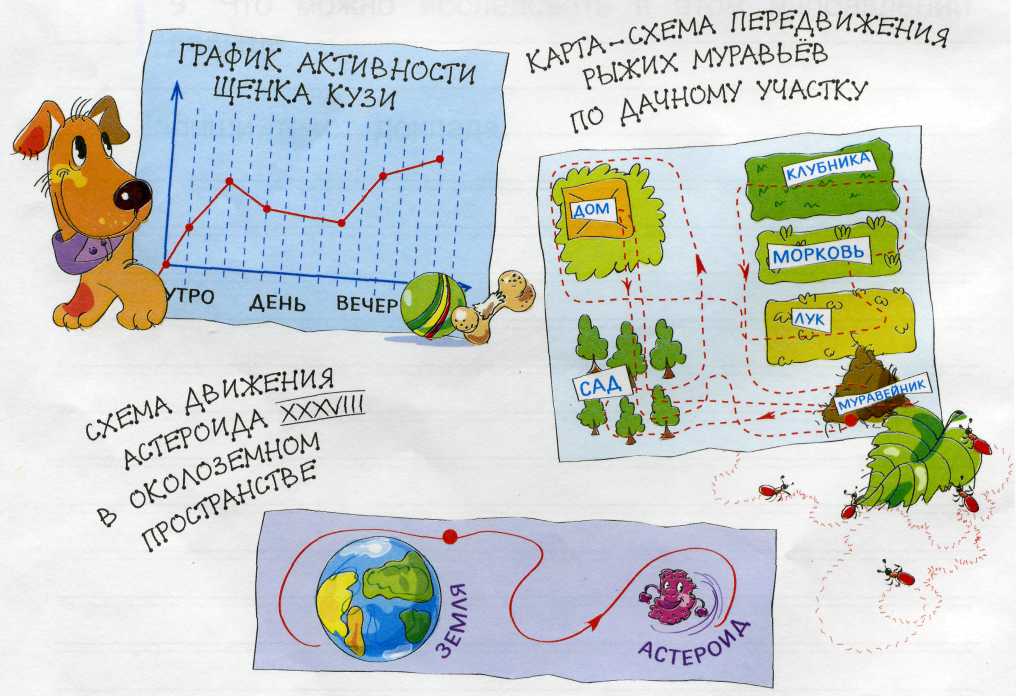 ГРАФИК АКТИВНОСТИ
ЩЕНКА КУЗИ
УТРО ДЕНЬ ВЕЧЕР
КАРТА-СХЕМА ПЕРЕДВИЖЕНИЯ
РЫЖИХ МУРАВЬЁВ
ПО ДАЧНОМУ УЧАСТКУ
КЛУБНИКА
ДОМ
МОРКОВЬ
ЛУК
САД
МУРАВЕЙНИК
СХЕМА ДВИЖЕНИЯ
АСТЕРОИДА XXXVIII
В ОКОЛОЗЕМНОМ
ПРОСТРАНСТВЕ
ЗЕМЛЯ
АСТЕРОИД